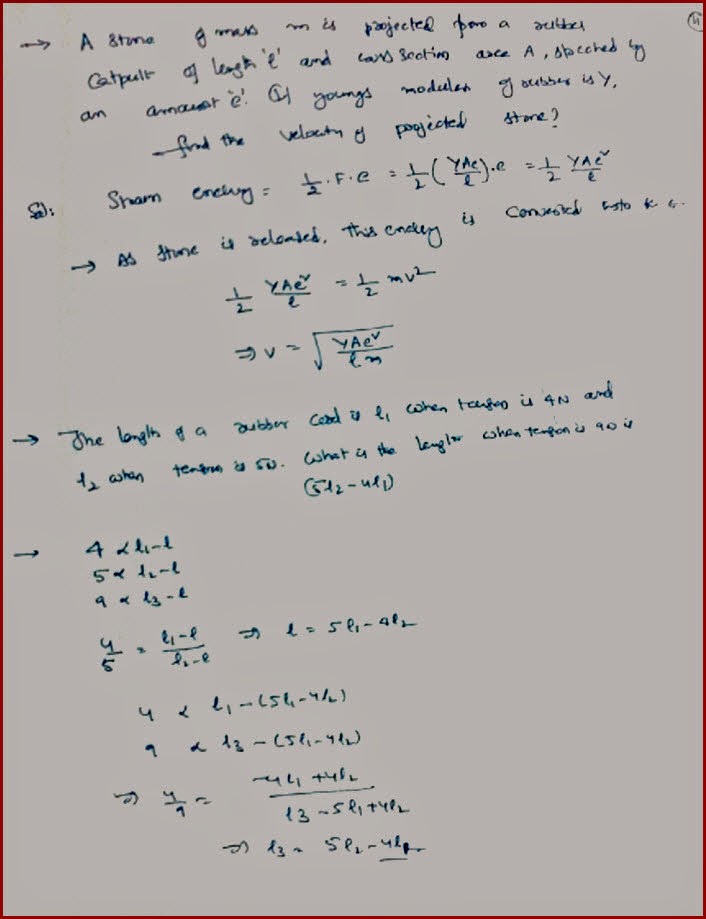 → A stone of mass m is projected from a rubber
catpult of length 'l' and cross section area A, streched by
an amount 'e'. If youngs modulus of rubber is Y,
find the velocity of projected stone?
Sol: Strain energy = 1/2 . F . e = 1/2 (YAe/l) . e = 1/2 YAe²/l
→ As stone is released, this energy is converted into K.E.
1/2 YAe²/l = 1/2 mv²
⇒ v = √(YAe²/lm)
→ The length of a rubber cord is l₁ when tension is 4N and
l₂ when tension is 5N. What is the length when tension is 9N is
(5l₂-4l₁)
→ 4 ∝ l₁-l
5 ∝ l₂-l
9 ∝ l₃-l
4/5 = (l₁-l)/(l₂-l) ⇒ l = 5l₁-4l₂
4 ∝ l₁-(5l₁-4l₂)
9 ∝ l₃-(5l₁-4l₂)
⇒ 4/9 = (-4l₁+4l₂)/(l₃-5l₁+4l₂)
⇒ l₃ = 5l₂-4l₁